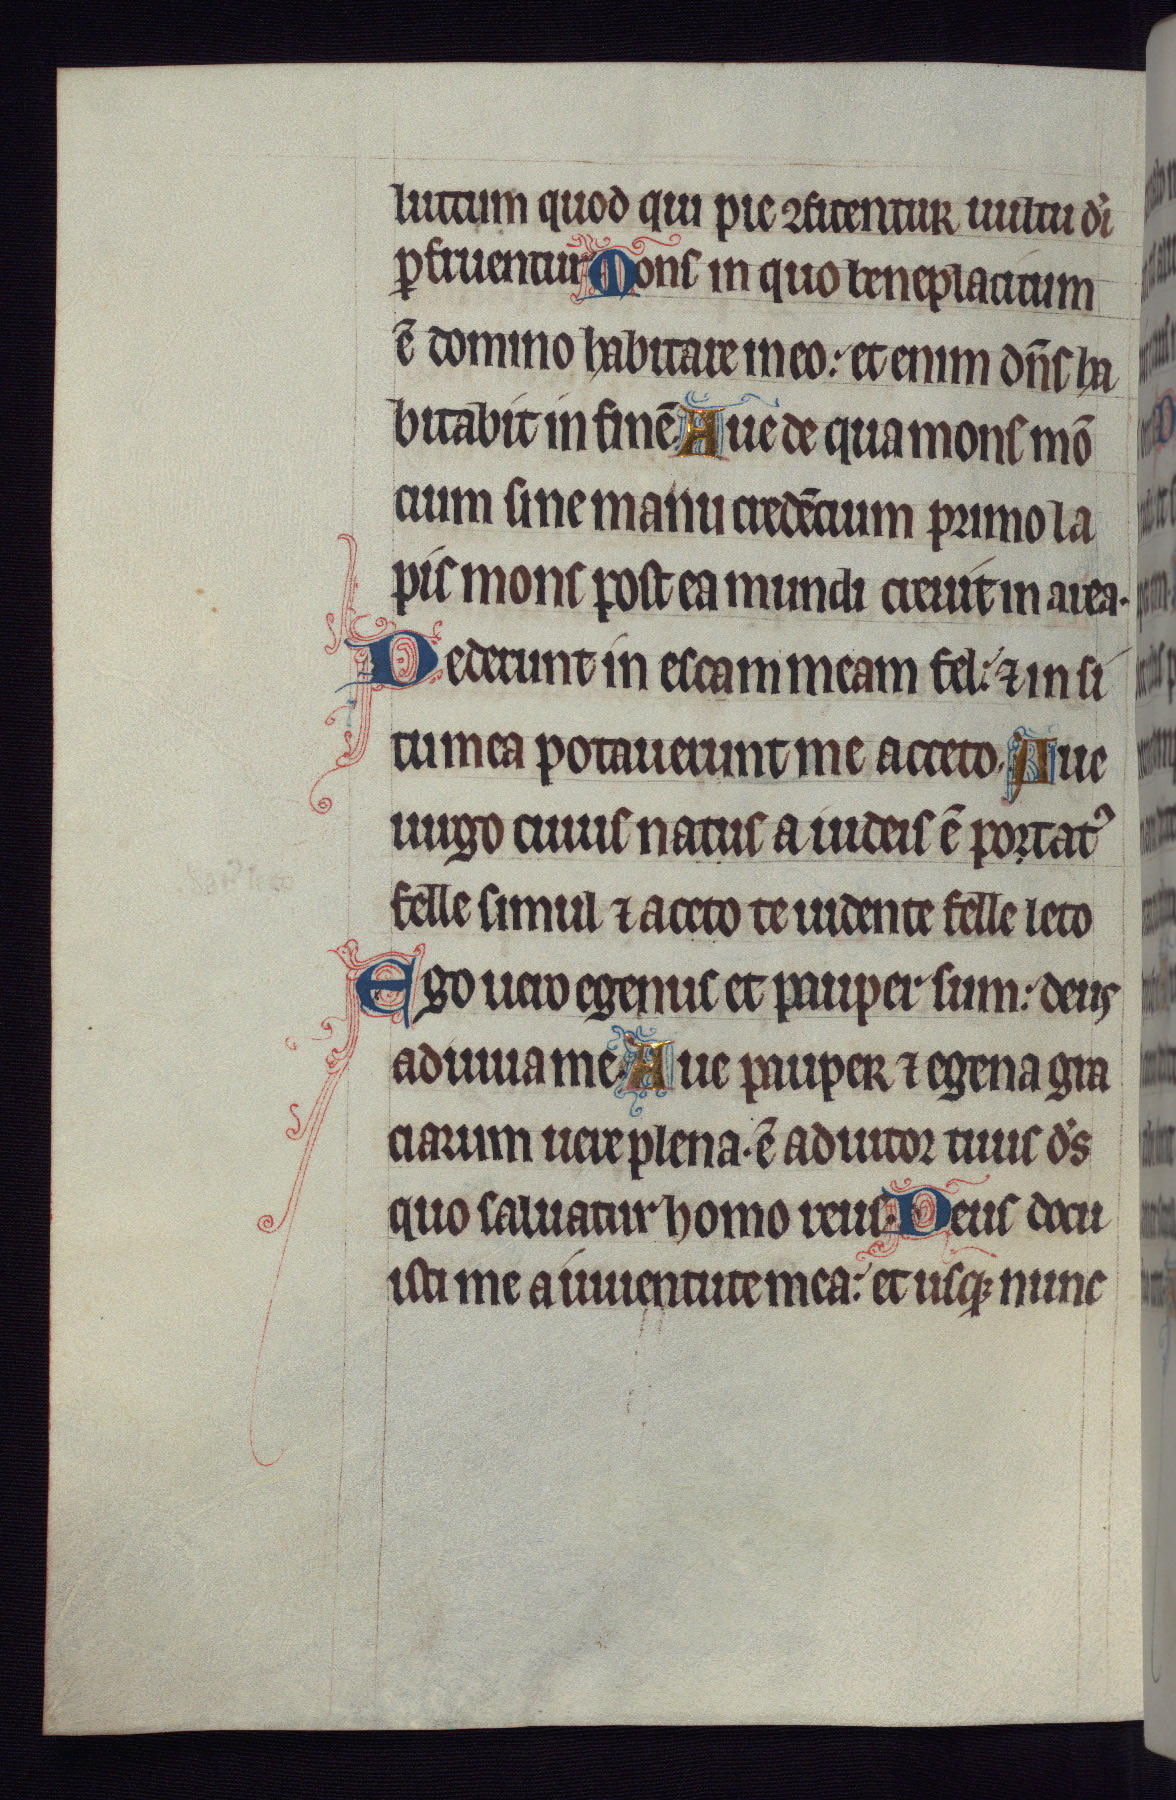 luttum quod qui pie ꝯfitentur uultu dī
ꝑfruentur Mons in quo beneplacitum
ē domino habitare in eo: et enim dn̄s ha
bitabit in finē. Aue de qua mons mō
cium sine manu credēcium primo la
pis mons post ea mundi creuit in area.
Dederunt in escam meam fel: ⁊ in si
ti mea potauerunt me acceto. Aue
uirgo cuius natus a iudeis ē portatꝰ
felle simul ⁊ aceto te uidente felle leto
Ego uero egenus et pauper sum: deus
adiuua me. Aue pauper ⁊ egena gra
ciarum uere plena. ē adiutor tuus ds̄
quo saluatur homo reus. Deus docu
isti me a iuuentute mea: et usqꝫ nunc